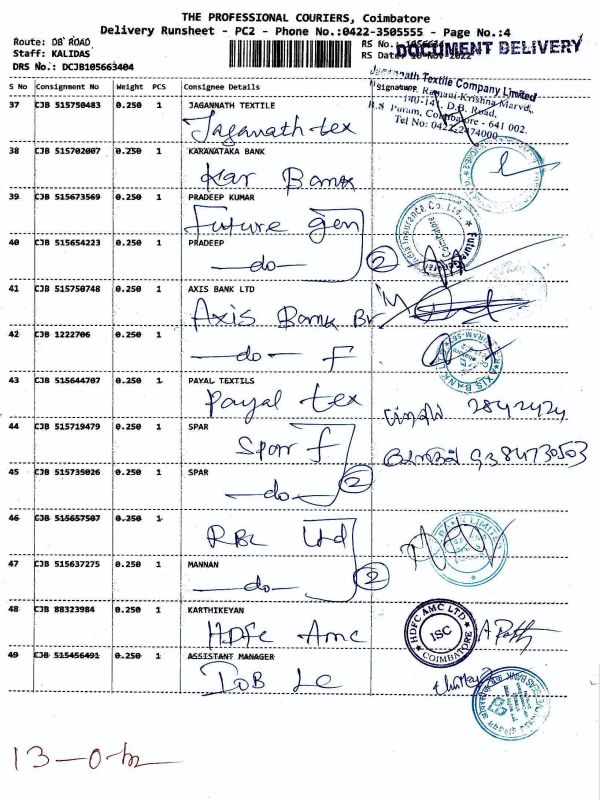 THE PROFESSIONAL COURIERS, Coimbatore
Delivery Runsheet - PC2 - Phone No.:0422-3505555 - Page No.:4
Route: DB ROAD
Staff: KALIDAS
DRS No.: DCJB105663404
RS No.:
RS Date: 10 Nov 2022
DOCUMENT DELIVERY
S No Consignment No Weight PCS Consignee Details Signature
Jagannath Textile Company Limited
140-141, D.B. Road,
R.S Puram, Coimbatore - 641 002.
Tel No: 0422-2474000
37 CJB 515750483 0.250 1 JAGANNATH TEXTILE
Jaganath tex
38 CJB 515702007 0.250 1 KARANATAKA BANK
Kar Bank
39 CJB 515673569 0.250 1 PRADEEP KUMAR
Future Gen
Future Generali India Insurance Co. Ltd.
Coimbatore
40 CJB 515654223 0.250 1 PRADEEP
—do— 2
41 CJB 515750748 0.250 1 AXIS BANK LTD
Axis Bank Br
42 CJB 1222706 0.250 1
—do— F
AXIS BANK
43 CJB 515644707 0.250 1 PAYAL TEXTILS
Payal tex
2842424
44 CJB 515719479 0.250 1 SPAR
Spar f
9384730503
45 CJB 515735026 0.250 1 SPAR
—do— 2
46 CJB 515657507 0.250 1
RBL Ltd
BANK LIMITED
47 CJB 515637275 0.250 1 MANNAN
—do— 2
48 CJB 88323984 0.250 1 KARTHIKEYAN
HDFC Amc
HDFC AMC LTD
ISC
COIMBATORE
49 CJB 515456491 0.250 1 ASSISTANT MANAGER
IOB Lc